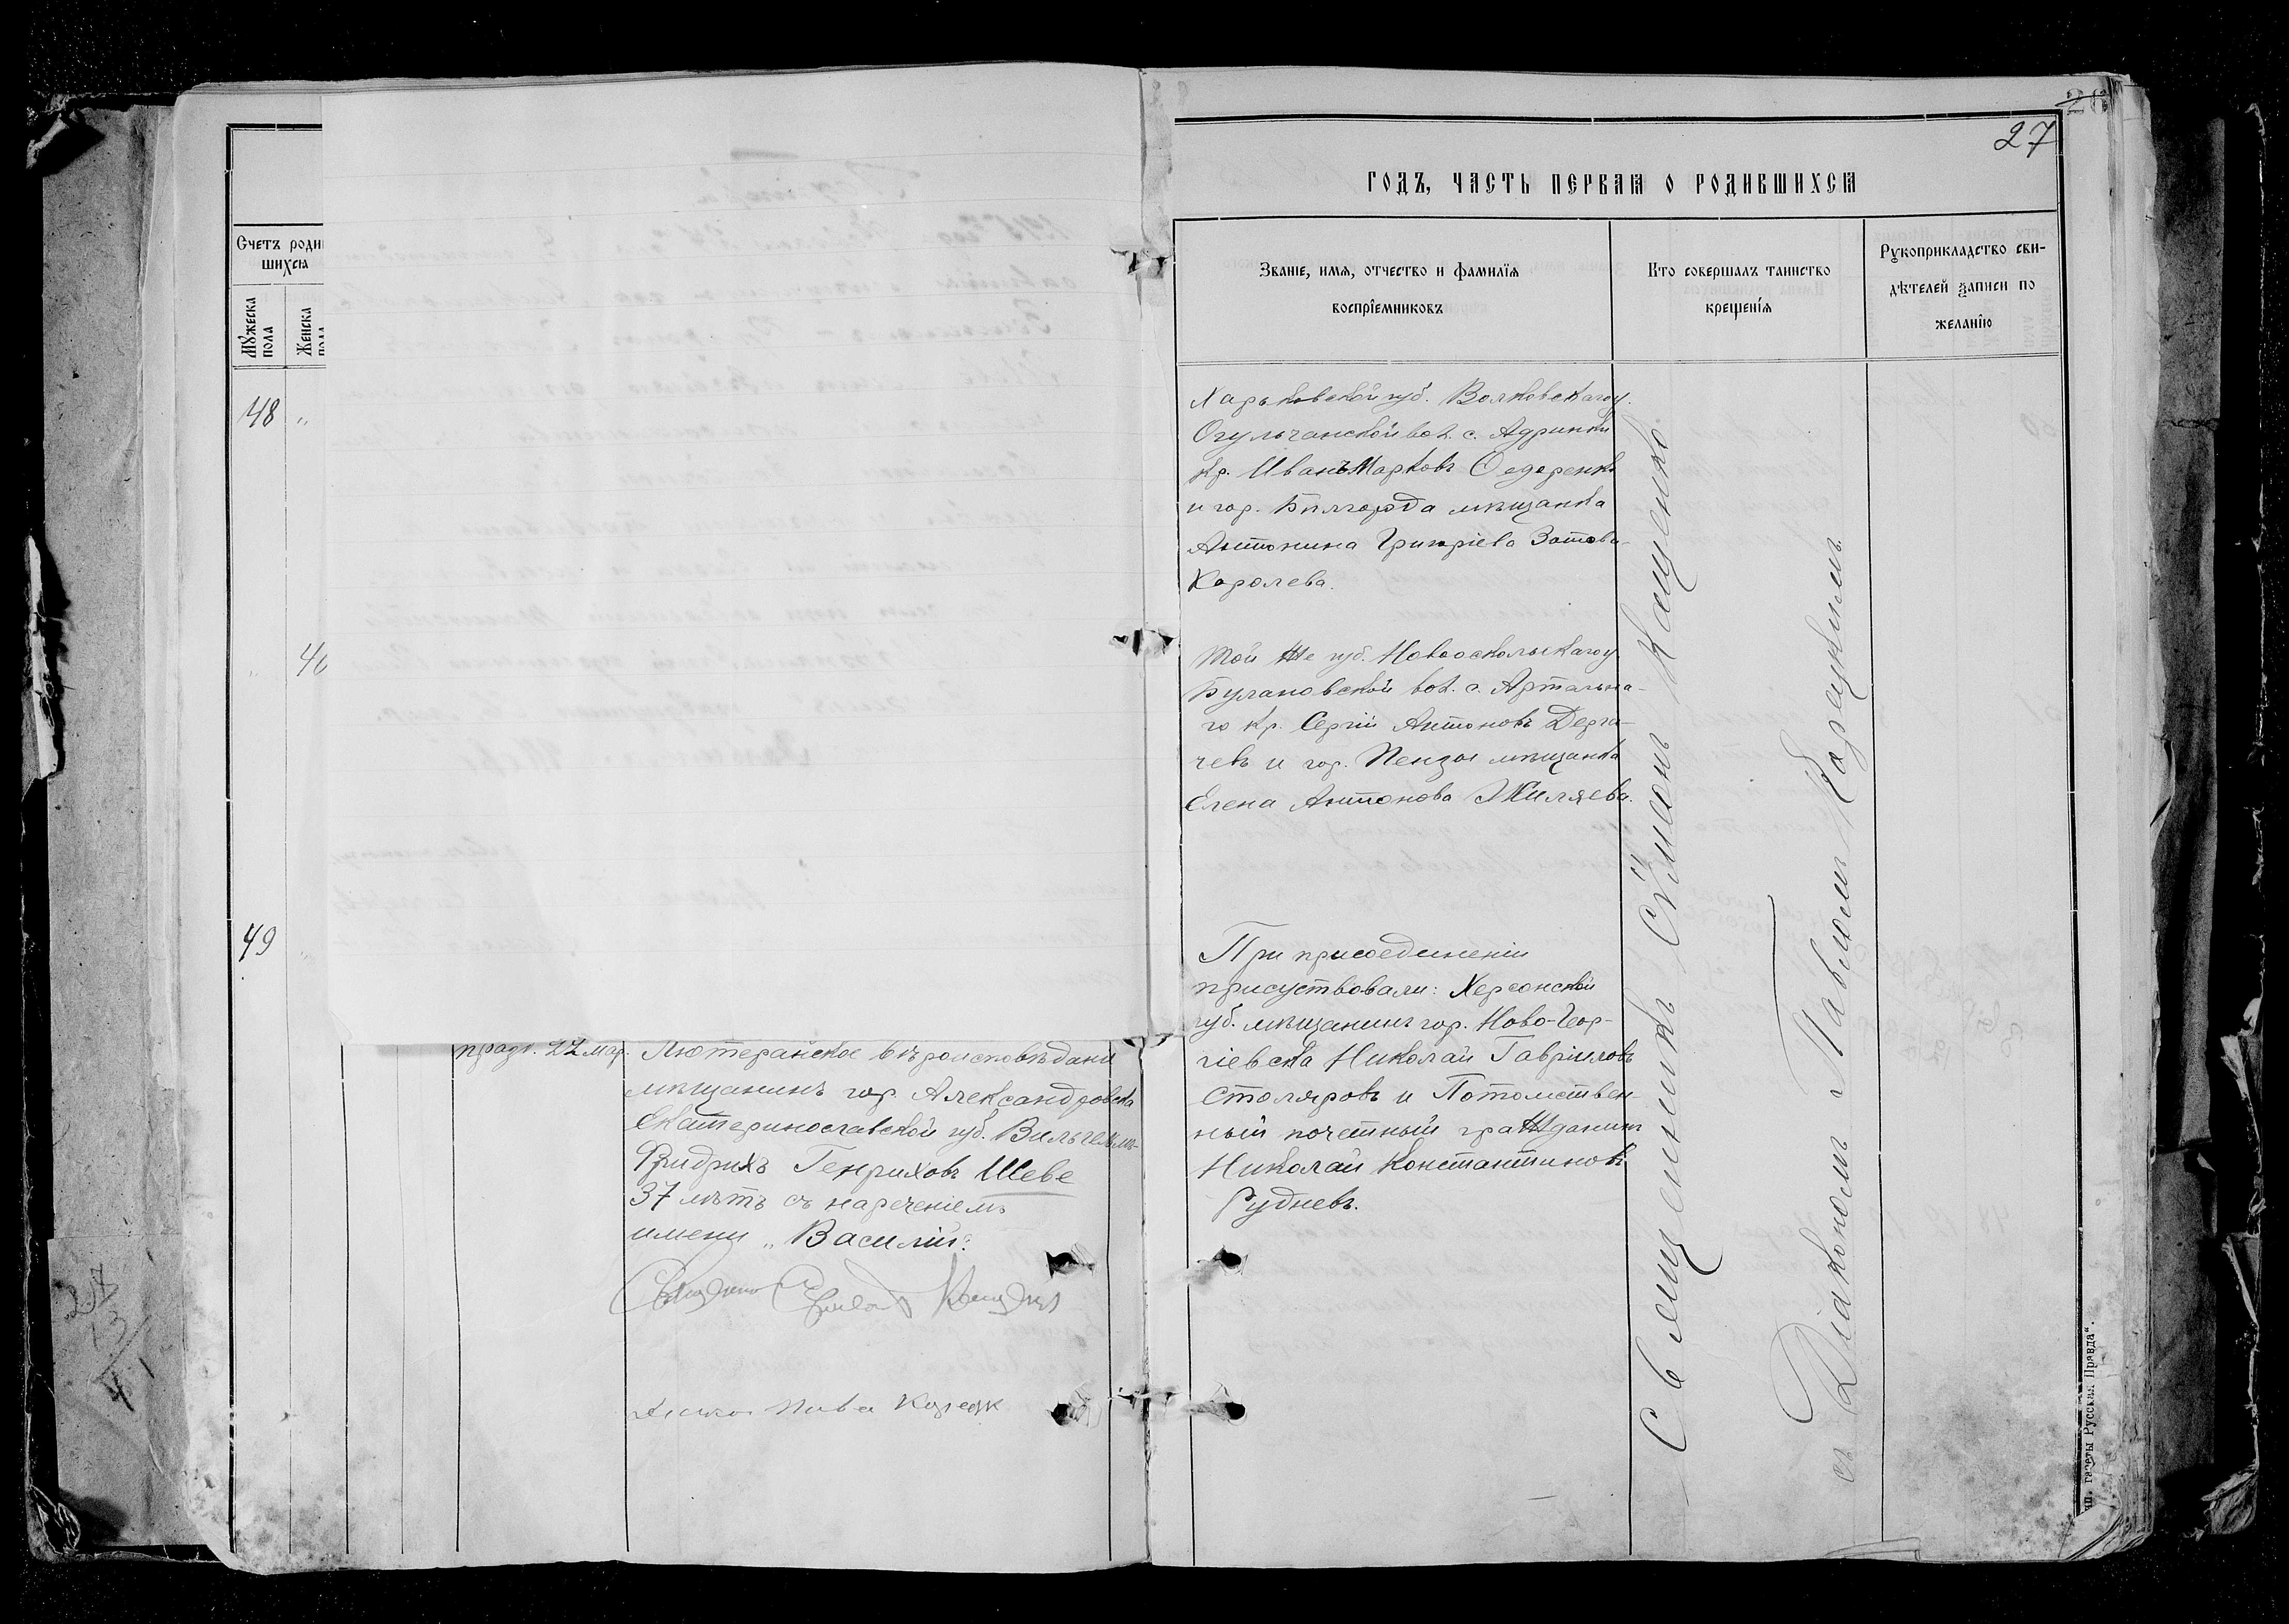 27
ГОДЪ, ЧАСТЬ ПЕРВАЯ О РОДИВШИХСЯ
Счетъ роди
шихся
Мужеска пола
Женска пола
Званіе, имя, отчество и фамилія
воспріемниковъ
Кто совершалъ таинство
крещенія
Рукоприкладство сви-
дѣтелей записи по
желанію
48 "
Харьковской губ. Волковскаго у.
Огульчанской вол. с.
Кр. Иванъ Марковъ Федоренко
и гор. Бѣлгорода мѣщанка
Антонина Григоріева Зотова-
Королева.
" 46
Той же губ. Новооскольскаго у.
Булановской вол. с. Артельна-
го Кр. Сергій Антоновъ Дерга-
чевъ и гор. Пензы мѣщанка
Елена Антонова Жиляева.
49 "
22 мар. Лютеранское вѣроисповѣдани
мѣщанинъ гор. Александровска
Екатеринославской губ. Вильгельмъ-
Фридрихъ Генриховъ Шеве
37 лѣтъ съ нареченіемъ
имени „Василій".
При присоединеніи
присуствовали: Херсонской
губ. мѣщанинъ гор. Ново-Геор-
гіевска Николай Гавриловъ
Столяровъ и Потомствен-
ный почетный гражданинъ
Николай Константиновъ
Рудневъ.
Священникъ Сѵмеонъ Кащенко
съ Діакономъ Павломъ
газеты Русская Правда".